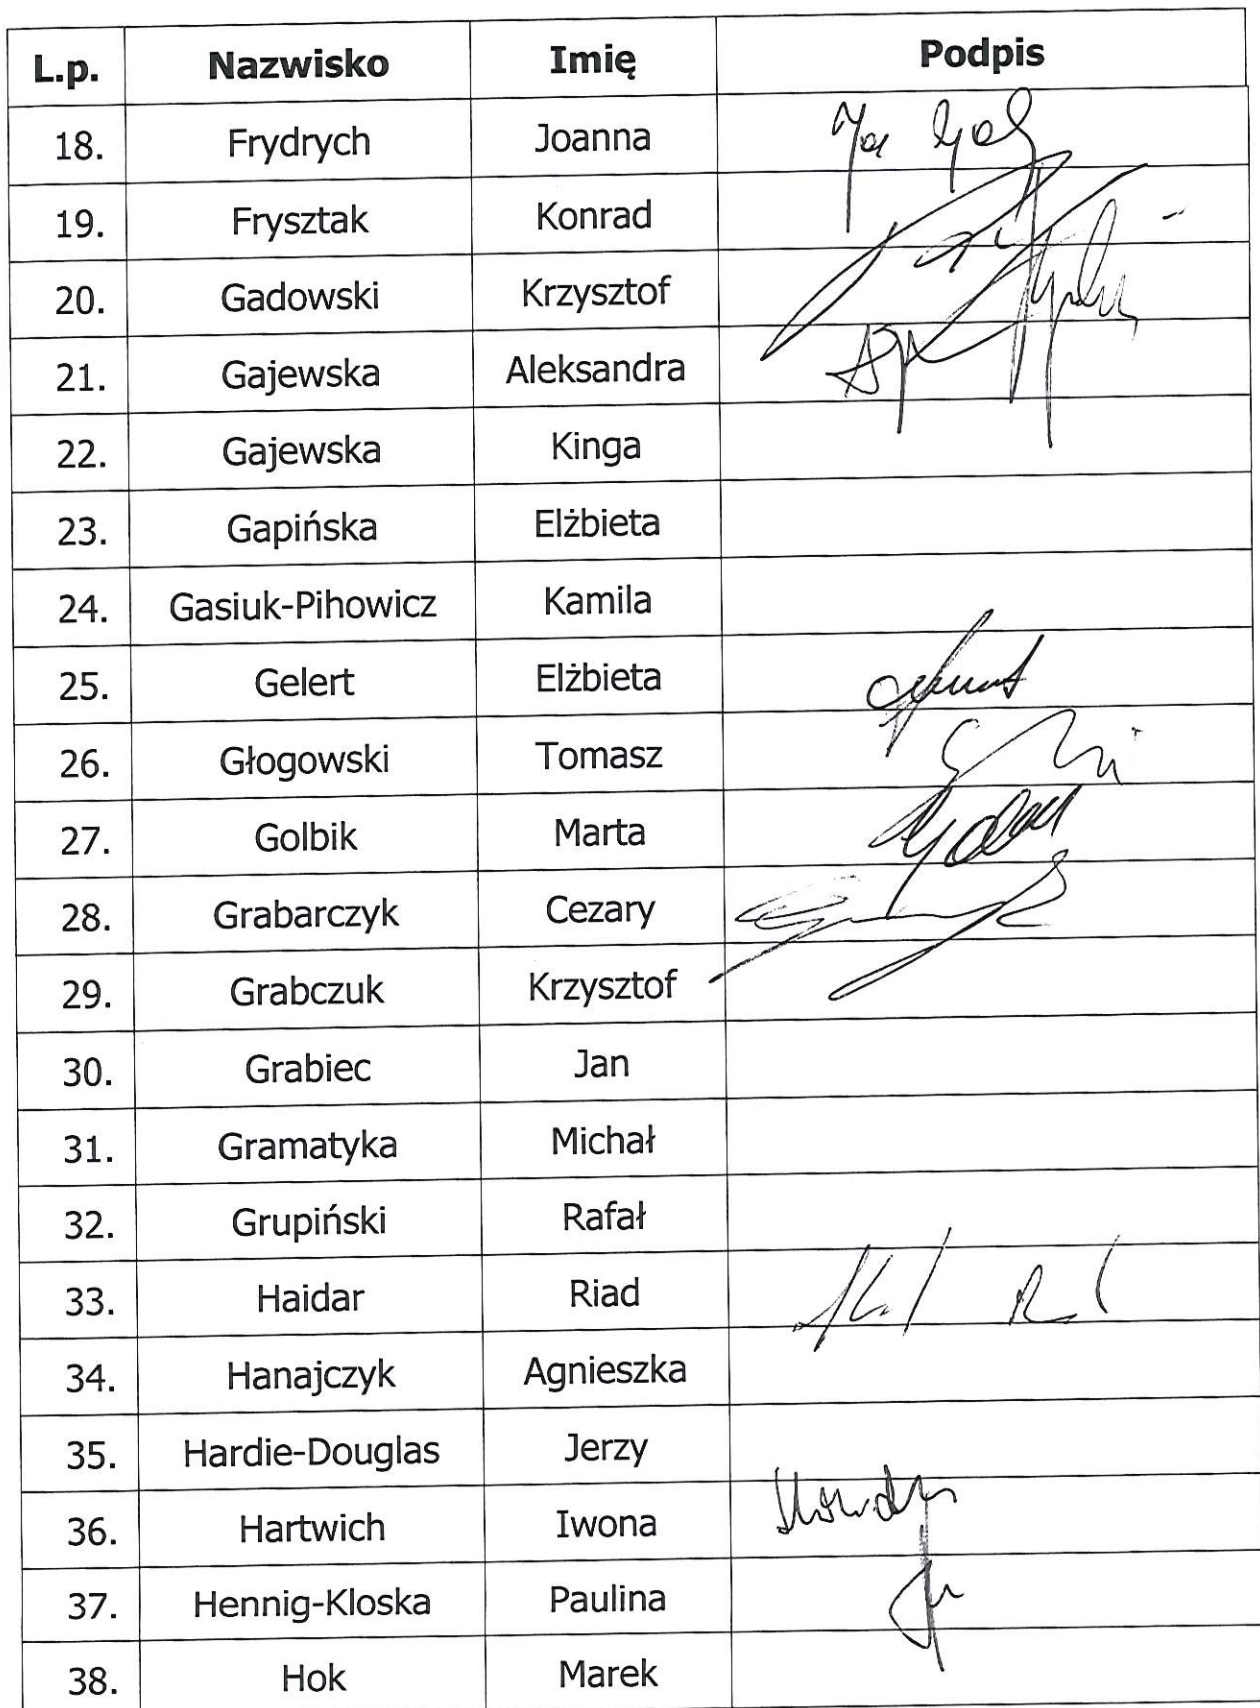 L.p. Nazwisko Imię Podpis
18. Frydrych Joanna
19. Frysztak Konrad
20. Gadowski Krzysztof
21. Gajewska Aleksandra
22. Gajewska Kinga
23. Gapińska Elżbieta
24. Gasiuk-Pihowicz Kamila
25. Gelert Elżbieta
26. Głogowski Tomasz
27. Golbik Marta
28. Grabarczyk Cezary
29. Grabczuk Krzysztof
30. Grabiec Jan
31. Gramatyka Michał
32. Grupiński Rafał
33. Haidar Riad
34. Hanajczyk Agnieszka
35. Hardie-Douglas Jerzy
36. Hartwich Iwona
37. Hennig-Kloska Paulina
38. Hok Marek